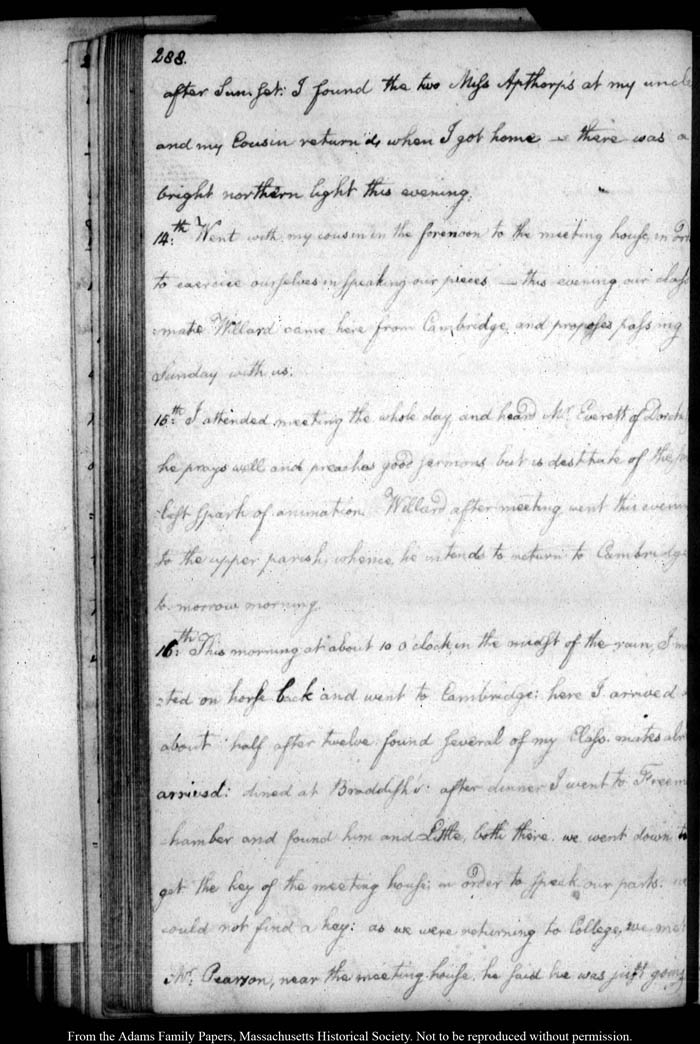 288.
after Sun set: I found the two Miss Apthorp's at my uncle
and my Cousin return'd, when I got home — there was a
bright northern light this evening,
14.th Went with my cousin in the forenoon to the meeting house, in
to exercise ourselves in speaking our pieces — this evening our class
:mate Willard came here from Cambridge, and proposes passing
Sunday with us.
15.th I attended meeting the whole day, and heard Mr. Everett of
he prays well and preaches good sermons but is destitute of the
:lest spark of animation. Willard after meeting went this
to the upper parish, whence, he intends to return to
to morrow morning
16.th This morning at about 10 o'clock, in the midst of the rain, I
:ted on horse back and went to Cambridge: here I arrived
about half after twelve. found several of my Class. mates
arrived: dined at Bradish's: after dinner I went to
chamber and found him and Little, both there. we went down to
get the key of the meeting house; in order to speak our parts.
could not find a key: as we were returning to College, we met
Mr. Pearson, near the meeting house, he said he was just going
From the Adams Family Papers, Massachusetts Historical Society. Not to be reproduced without permission.